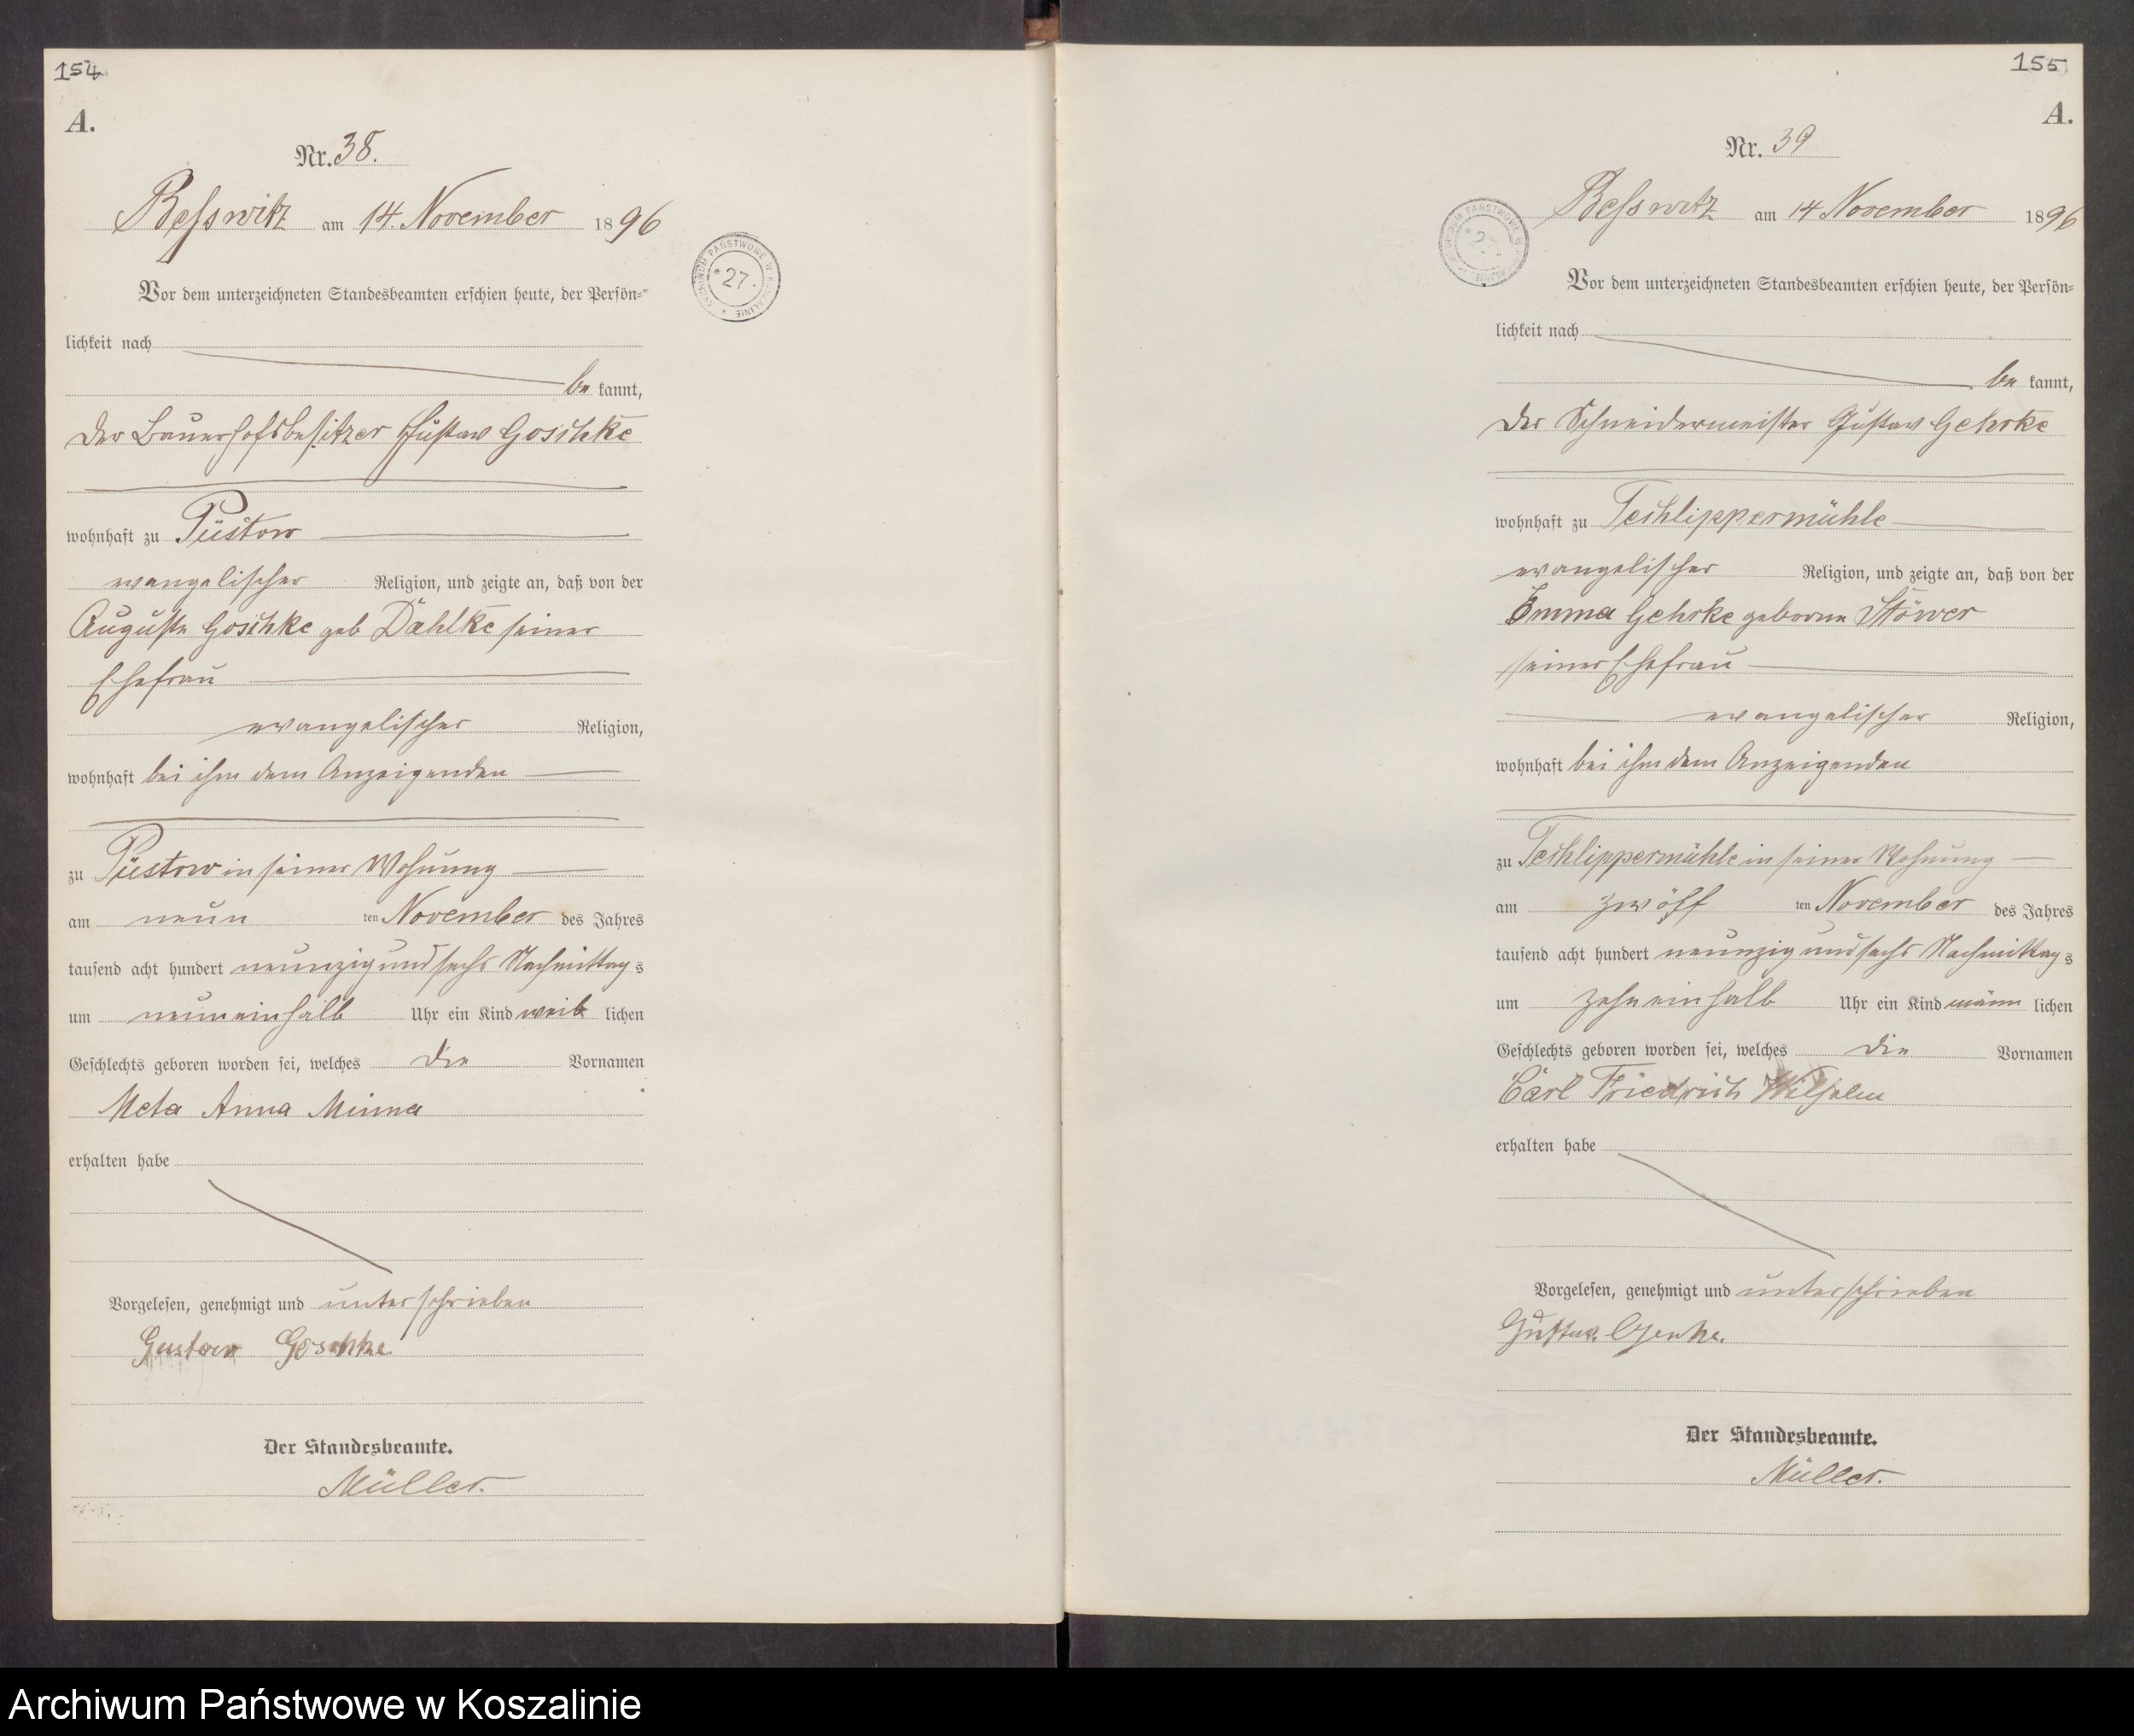 154
A.
Nr. 38.
Beßwitz am 14. November 1896
Vor dem unterzeichneten Standesbeamten erschien heute, der Persön-
lichkeit nach
be kannt,
der Bauerhofsbesitzer Gustav Goschke
wohnhaft zu Püstow
evangelischer Religion, und zeigte an, daß von der
Auguste Goschke geb Dahlke seiner
Ehefrau
evangelischer Religion,
wohnhaft bei ihm dem Anzeigenden
zu Püstow in seiner Wohnung
am neun ten November des Jahres
tausend acht hundert neunzig und sechs Nachmittag s
um neuneinhalb Uhr ein Kind weib lichen
Geschlechts geboren worden sei, welches die Vornamen
Meta Anna Minna
erhalten habe
Vorgelesen, genehmigt und unterschrieben
Gustav Goschke
Der Standesbeamte.
Müller.
ARCHIWUM PAŃSTWOWE W KOSZALINIE
* 27.
155
A.
Nr. 39
Beßwitz am 14 November 1896
Vor dem unterzeichneten Standesbeamten erschien heute, der Persön-
lichkeit nach
be kannt,
der Schneidermeister Gustav Gehrke
wohnhaft zu Techlippermühle
evangelischer Religion, und zeigte an, daß von der
Emma Gehrke geborne Stöwer
seiner Ehefrau
evangelischer Religion,
wohnhaft bei ihm dem Anzeigenden
zu Techlippermühle in seiner Wohnung
am zwölf ten November des Jahres
tausend acht hundert neunzig und sechs Nachmittag s
um zehneinhalb Uhr ein Kind männ lichen
Geschlechts geboren worden sei, welches die Vornamen
Carl Friedrich Wilhelm
erhalten habe
Vorgelesen, genehmigt und unterschrieben
Gustav
Der Standesbeamte.
Müller.
Archiwum Państwowe w Koszalinie